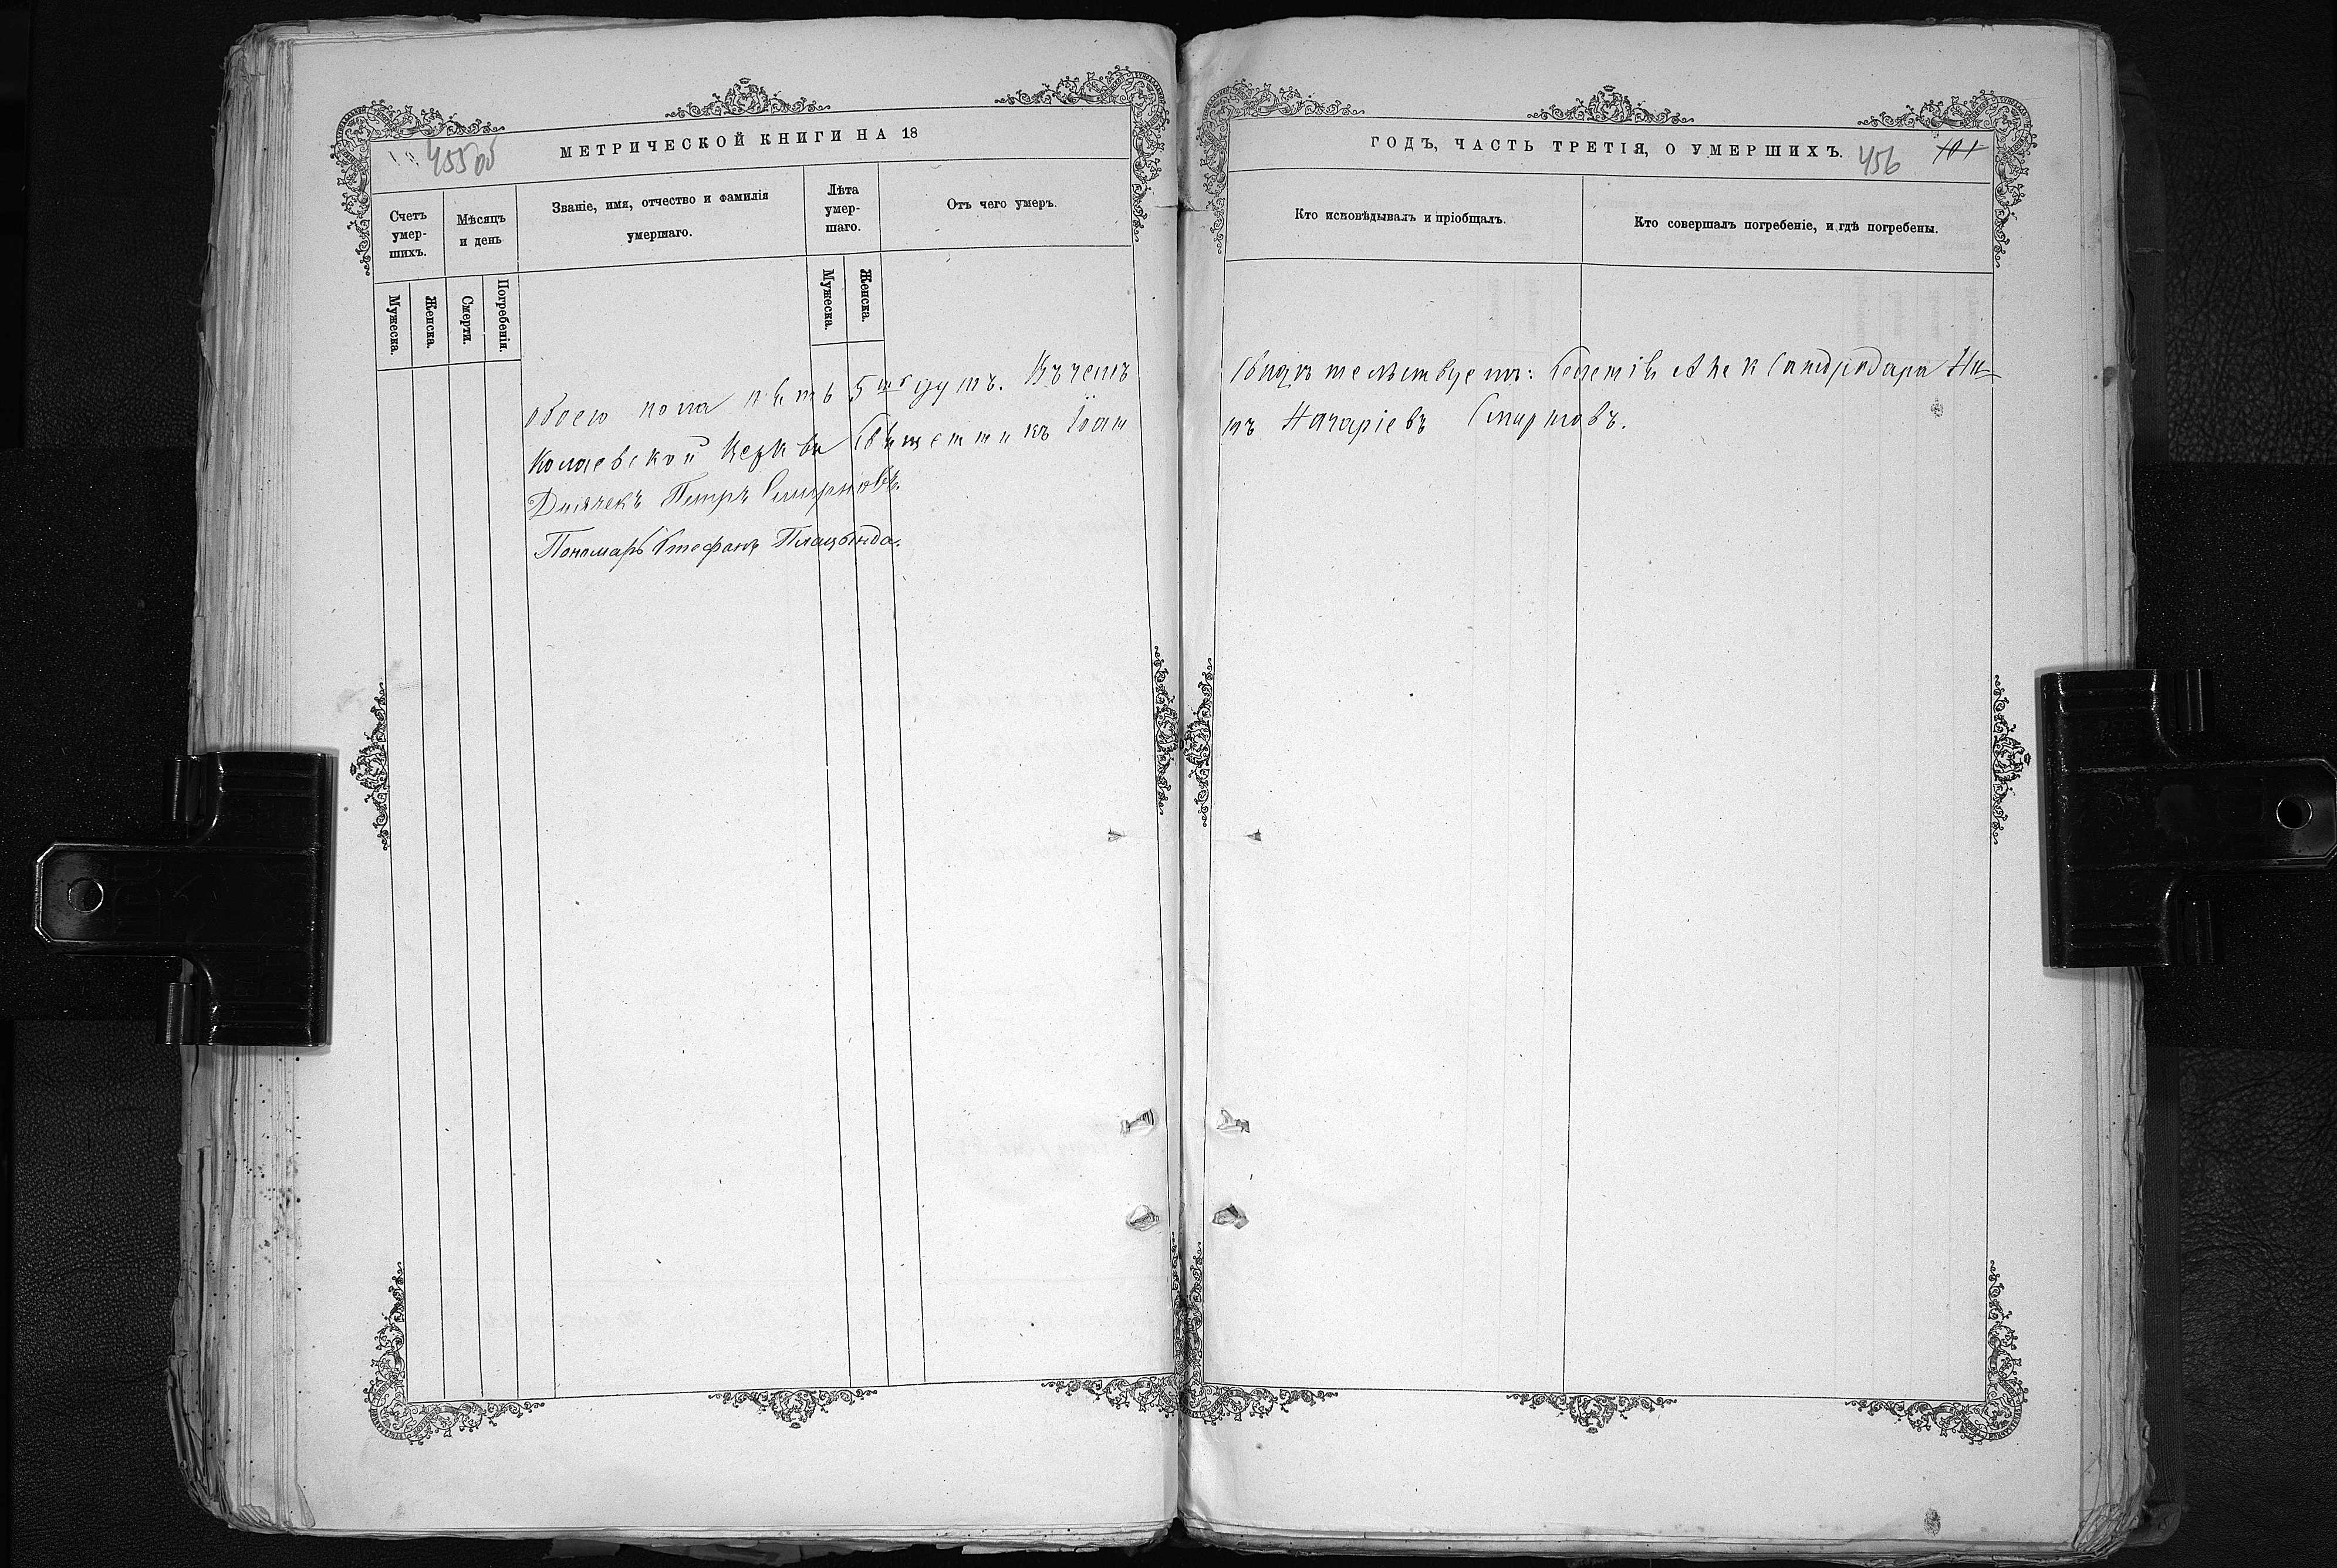 МЕТРИЧЕСКОЙ КНИГИ НА 18
455об
Счетъ умер-шихъ.
Мѣсяцъ и день
Званіе, имя, отчество и фамилія умершаго.
Лѣта умер-шаго.
Отъ чего умеръ.
Мужеска.
Женска.
Смерти.
Погребенія.
Мужеска.
Женска.
обоего пола пять 5 душъ. Въ чемъ
колаевской Церкви Священникъ Іоан
Дьячекъ Петръ Смирновъ.
Пономарь Стефанъ Плацында.
ГОДЪ, ЧАСТЬ ТРЕТІЯ, О УМЕРШИХЪ.
456
101
Кто исповѣдывалъ и пріобщалъ.
Кто совершалъ погребеніе, и гдѣ погребены.
свидѣтельствуетъ: Александродара Ни-
нъ Назаріевъ Смирновъ.